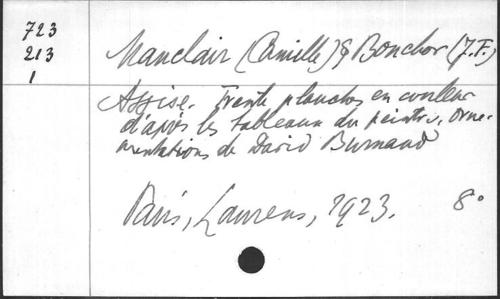 723
213
1
Mauclair (Camille) & Bouchor (J.F.)
Assise. Trente planches en couleur
d'après les tableaux du peintre. Orne-
mentations de David Burnand
Paris, Laurens, 1923. 8°